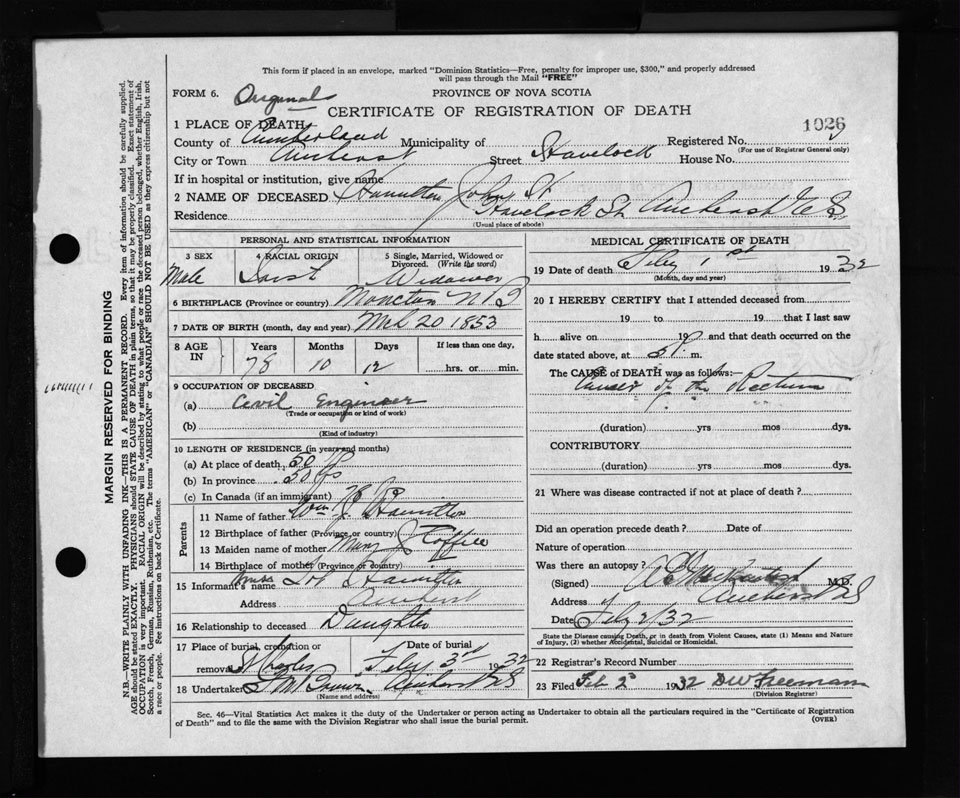 This form if placed in an envelope, marked "Dominion Statistics—Free, penalty for improper use, $300," and properly addressed
will pass through the Mail "FREE"
FORM 6. Original
PROVINCE OF NOVA SCOTIA
CERTIFICATE OF REGISTRATION OF DEATH
1026
1 PLACE OF DEATH
County of Cumberland Municipality of Registered No.
(For use of Registrar General only)
City or Town Amherst Street Havelock House No.
If in hospital or institution, give name
2 NAME OF DECEASED Hamilton John
Residence Havelock St. Amherst N S
(Usual place of abode)
PERSONAL AND STATISTICAL INFORMATION
3 SEX 4 RACIAL ORIGIN 5 Single, Married, Widowed or
Divorced. (Write the word)
Male Irish Widower
6 BIRTHPLACE (Province or country) Moncton N B
7 DATE OF BIRTH (month, day and year) Mch 20 1853
8 AGE IN Years Months Days If less than one day,
78 10 12 hrs. or min.
9 OCCUPATION OF DECEASED
(a) Civil Engineer
(Trade or occupation or kind of work)
(b)
(Kind of industry)
10 LENGTH OF RESIDENCE (in years and months)
(a) At place of death 50
(b) In province 50
(c) In Canada (if an immigrant) 78
Parents
11 Name of father Wm J. Hamilton
12 Birthplace of father (Province or country)
13 Maiden name of mother Mary
14 Birthplace of mother (Province or country)
15 Informant's name Hamilton
Address Amherst
16 Relationship to deceased Daughter
17 Place of burial, cremation or Date of burial
removal St Charles Feby 3rd 1932
18 Undertaker Brown Amherst N S
(Name and address)
MEDICAL CERTIFICATE OF DEATH
19 Date of death Feby 1st 1932
(Month, day and year)
20 I HEREBY CERTIFY that I attended deceased from
19 to 19 that I last saw
h alive on 19 and that death occurred on the
date stated above, at 5 P. m.
The CAUSE of DEATH was as follows:—
Cancer of the Rectum
(duration) yrs mos dys.
CONTRIBUTORY
(duration) yrs mos dys.
21 Where was disease contracted if not at place of death?
Did an operation precede death? Date of
Nature of operation
Was there an autopsy?
(Signed) M.D.
Address Amherst N S
Date Feby 2/32
State the Disease causing Death, or in death from Violent Causes, state (1) Means and Nature
of Injury, (2) whether Accidental, Suicidal or Homicidal.
22 Registrar's Record Number
23 Filed Feb 2 1932 D W Freeman
(Division Registrar)
Sec. 46—Vital Statistics Act makes it the duty of the Undertaker or person acting as Undertaker to obtain all the particulars required in the "Certificate of Registration
of Death" and to file the same with the Division Registrar who shall issue the burial permit.
(OVER)
MARGIN RESERVED FOR BINDING
N.B.—WRITE PLAINLY WITH UNFADING INK—THIS IS A PERMANENT RECORD. Every item of information should be carefully supplied.
AGE should be stated EXACTLY. PHYSICIANS should STATE CAUSE OF DEATH in plain terms, so that it may be properly classified. Exact statement of
OCCUPATION is very important. RACIAL ORIGIN will be described by stating to what people or race the deceased person belonged, whether English, Irish,
Scotch, French, German, Russian, Ruthenian, etc. The terms "AMERICAN" or "CANADIAN" SHOULD NOT BE USED as they express citizenship but not
a race or people. See instructions on back of Certificate.